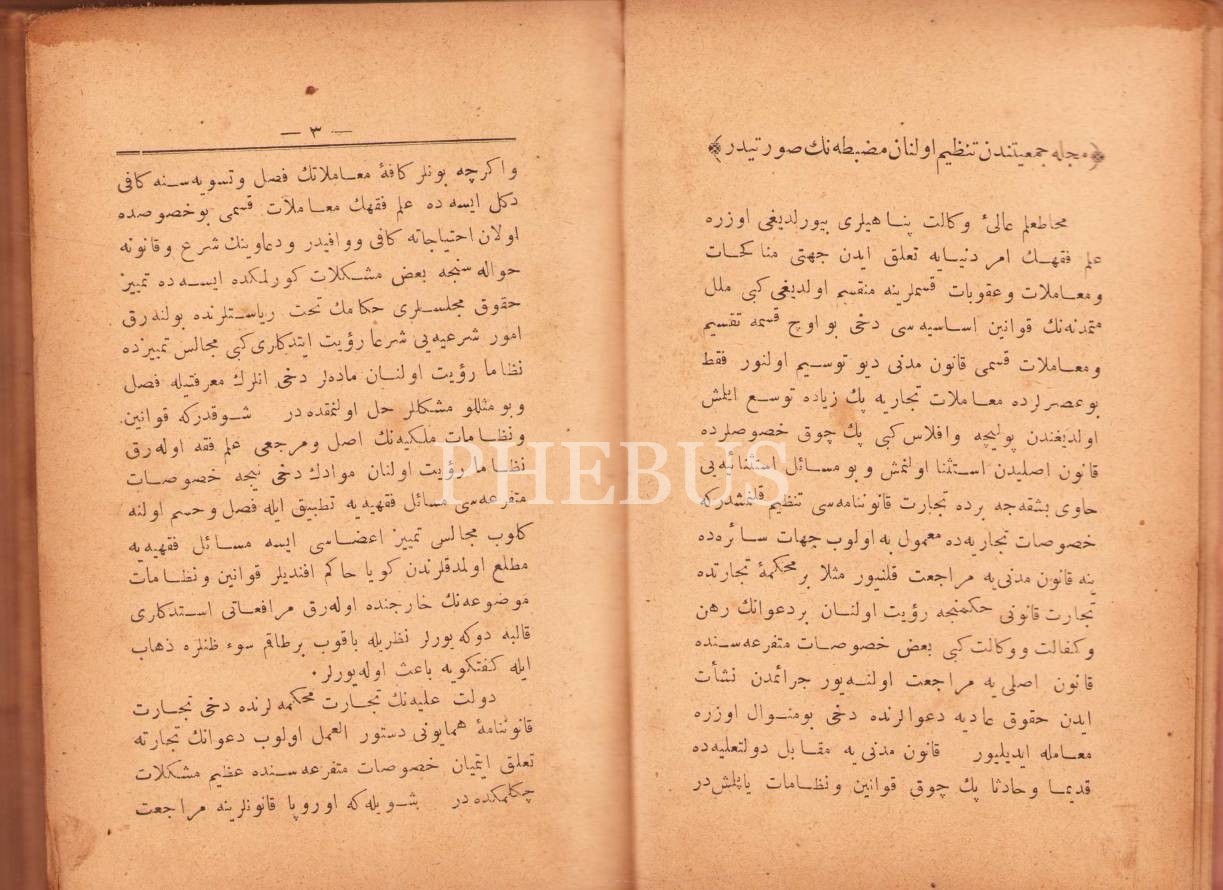 ﴿ مجله جمعیتندن تنظیم اولنان مضبطه نك صورتیدر ﴾
محاطعلم عالیٔ وكالت پناهیلری بیورلدیغی اوزره
علم فقهك امر دنیایه تعلق ایدن جهتی مناكحات
ومعاملات وعقوبات قسملرینه منقسم اولدیغی كبی ملل
متمدنه نك قوانین اساسیه سی دخی بو اوچ قسمه تقسیم
ومعاملات قسمی قانون مدنی دیو توسیم اولنور فقط
بوعصرلرده معاملات تجاریه پك زیاده توسع ایلمش
اولدیغندن پولیچه وافلاس كبی پك چوق خصوصلرده
قانون اصلیدن استثنا اولنمش وبو مسائل استثنائیه یی
حاوی بشقه جه برده تجارت قانوننامه سی تنظیم قلنمشدركه
خصوصات تجاریه ده معمول به اولوب جهات سائره ده
ینه قانون مدنی یه مراجعت قلنیور مثلا بر محكمهٔ تجارتده
تجارت قانونی حكمنجه رؤیت اولنان بردعوانك رهن
وكفالت ووكالت كبی بعض خصوصات متفرعه سنده
قانون اصلی یه مراجعت اولنه یور جرائمدن نشأت
ایدن حقوق عادیه دعوالرنده دخی بومنوال اوزره
معامله ایدیلیور قانون مدنی یه مقابل دولتعلیه ده
قدیما وحادثا پك چوق قوانین ونظامات یاپلمش در
— ٣ —
واكرچه بونلر كافهٔ معاملاتك فصل وتسویه سنه كافی
دكل ایسه ده علم فقهك معاملات قسمی بوخصوصده
اولان احتیاجاته كافی ووافیدر ودعاوینك شرع وقانونه
حواله سنجه بعض مشكلات كورلمكده ایسه ده تمییز
حقوق مجلسلری حكامك تحت ریاستلرنده بولنه رق
امور شرعیه یی شرعا رؤیت ایتدكاری كبی مجالس تمییزده
نظاما رؤیت اولنان ماده لر دخی انلرك معرفتیله فصل
وبو مثللو مشكللر حل اولنمقده در شوقدركه قوانین
ونظامات ملكیه نك اصل ومرجعی علم فقه اوله رق
نظاما رؤیت اولنان موادك دخی نیجه خصوصات
متفرعه سی مسائل فقهیه یه تطبیق ایله فصل وحسم اولنه
كلوب مجالس تمییز اعضاسی ایسه مسائل فقهیه یه
مطلع اولمدقلرندن كویا حاكم افندیلر قوانین ونظامات
موضوعه نك خارجنده اوله رق مرافعاتی استدكاری
قالبه دوكه یورلر نظریله باقوب برطاقم سوء ظنلره ذهاب
ایله كفتكویه باعث اوله یورلر.
دولت علیه نك تجارت محكمه لرنده دخی تجارت
قانوننامهٔ همایونی دستور العمل اولوب دعوانك تجارته
تعلق ایتمیان خصوصات متفرعه سنده عظیم مشكلات
چكلمكده در شویله كه اوروپا قانونلرینه مراجعت
PHEBUS